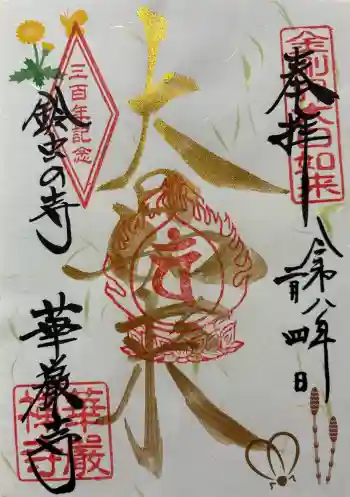 金剛界大日如来
奉拝
令和八年
二月四日
大日如来
三百年記念
鈴虫の寺
華厳寺
華嚴禅寺